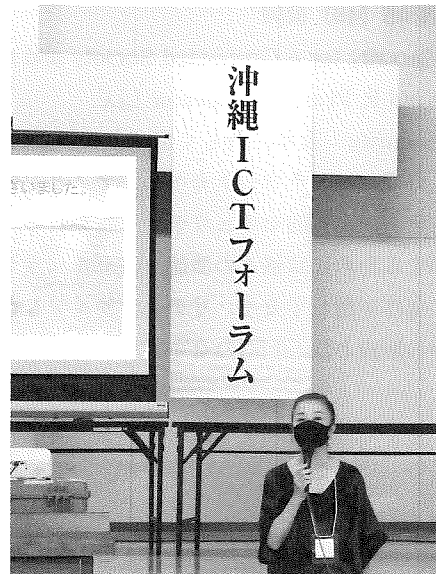 沖縄ICTフォーラム
ざいました。